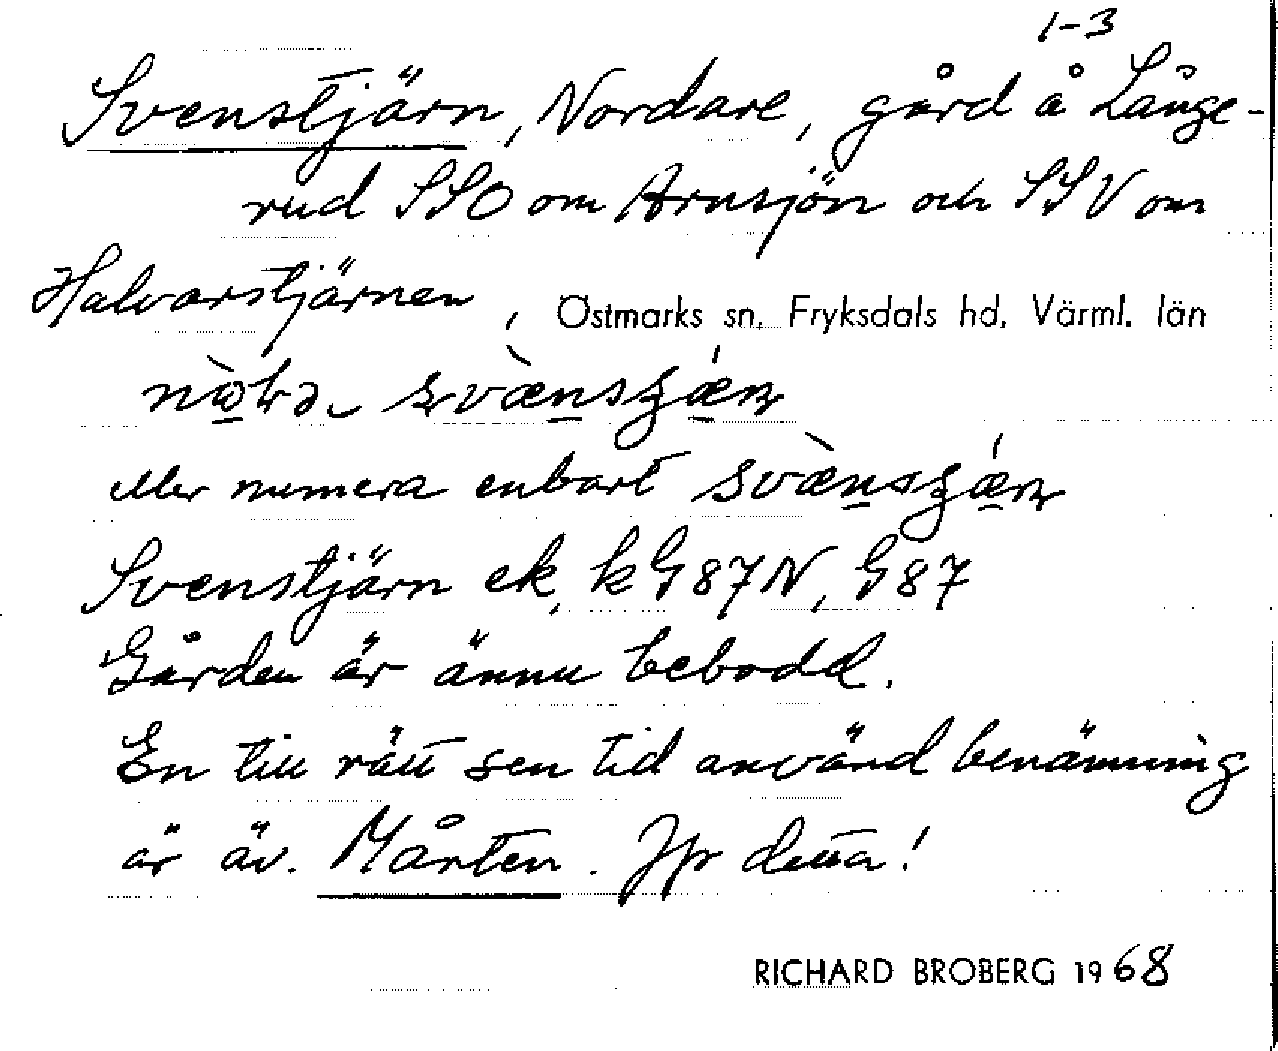 1-3
Svenstjärn, Nordare, gård å Långe-
rud SSO om Arnsjön och SSV om
Halvarstjärnen, Östmarks sn, Fryksdals hd, Värml. län
eller numera enbart
Svenstjärn ek, k G 87 N, G 87
Gården är ännu bebodd.
En till rätt sen tid använd benämning
är äv. Mårten. Jfr detta!
RICHARD BROBERG 1968